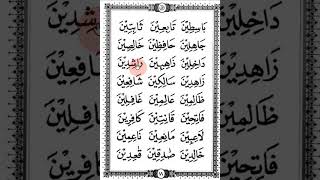 بَاسِطِيْنَ تَابِعِيْنَ ثَابِتِيْنَ
جَاهِلِيْنَ حَافِظِيْنَ خَالِصِيْنَ
دَاخِلِيْنَ ذَاهِبِيْنَ رَاشِدِيْنَ
زَاهِدِيْنَ سَالِكِيْنَ شَافِعِيْنَ
ظَالِمِيْنَ عَالِمِيْنَ غَافِلِيْنَ
فَاتِحِيْنَ قَانِتِيْنَ كَافِرِيْنَ
لَاعِبِيْنَ مَانِعِيْنَ نَاعِمِيْنَ
خَالِدِيْنَ صٰدِقِيْنَ قٰعِدِيْنَ